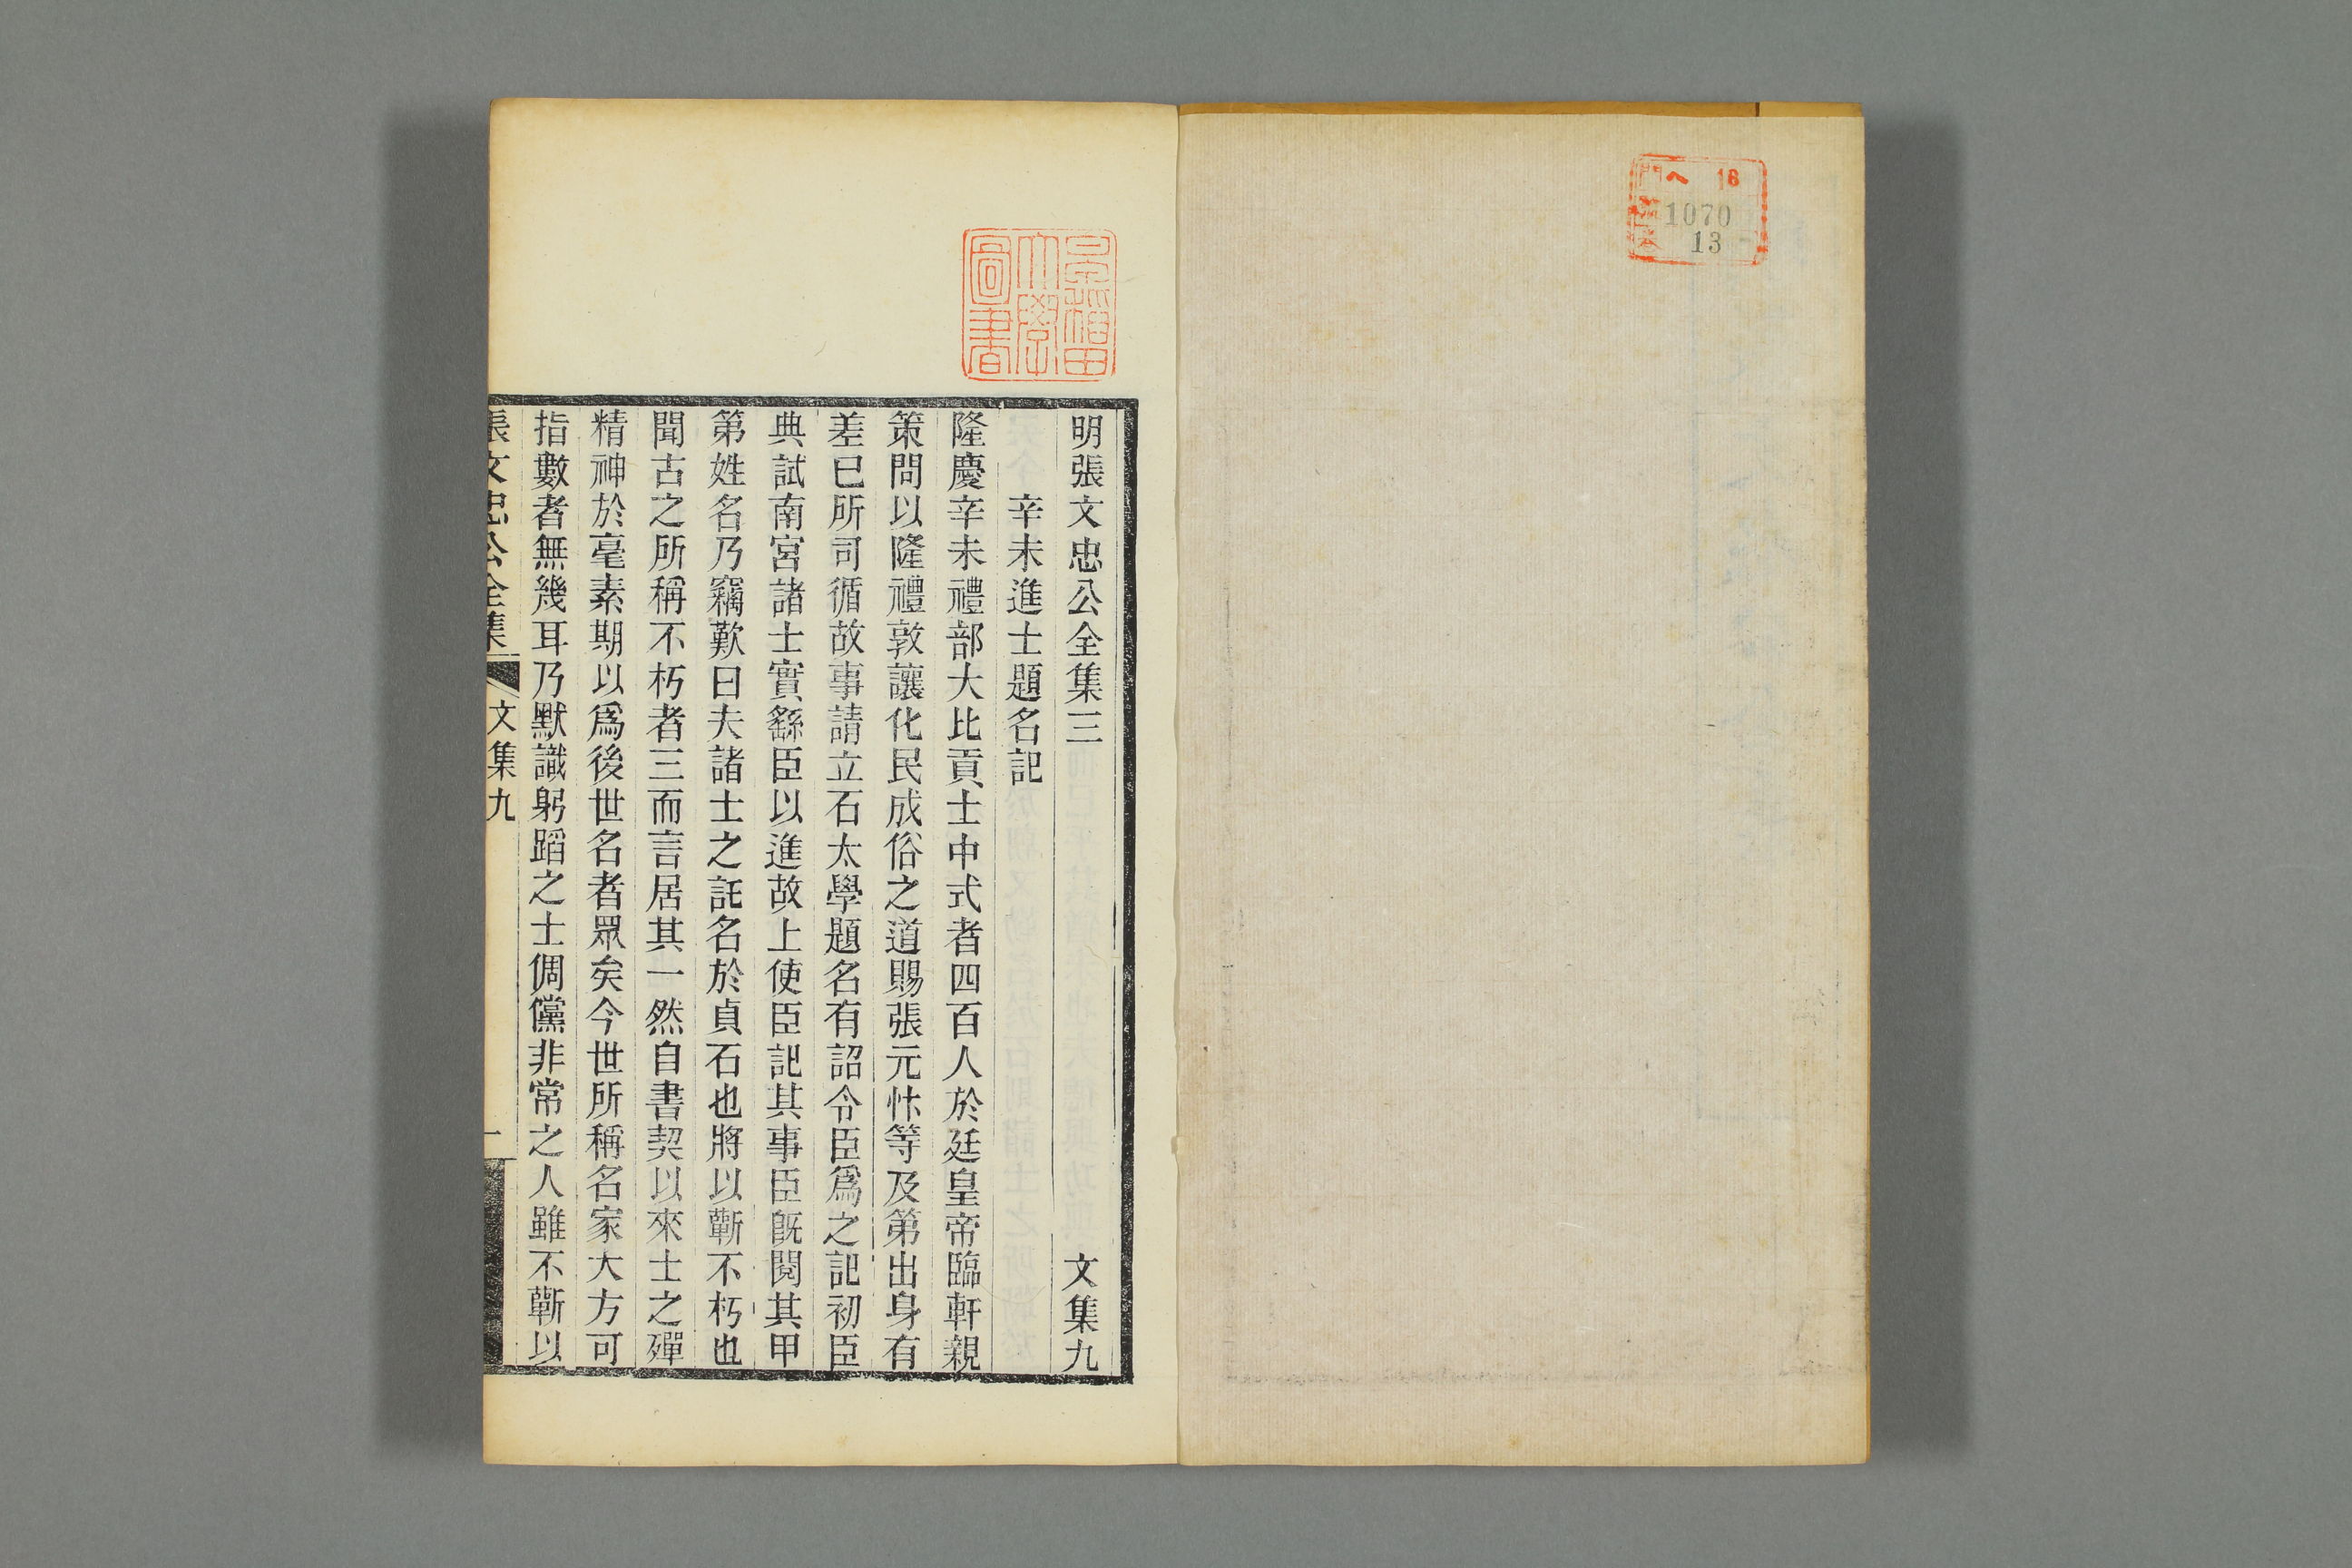 門 ヘ 16
號 1070
卷 13
早稲田
大學
圖書
明張文忠公全集三 文集九
辛未進士題名記
隆慶辛未禮部大比貢士中式者四百人於廷皇帝臨軒親
策問以隆禮敦讓化民成俗之道賜張元忭等及第出身有
差已所司循故事請立石太學題名有詔令臣爲之記初臣
典試南宮諸士實繇臣以進故上使臣記其事臣旣閱其甲
第姓名乃竊歎曰夫諸士之託名於貞石也將以蘄不朽也
聞古之所稱不朽者三而言居其一然自書契以來士之殫
精神於毫素期以爲後世名者眾矣今世所稱名家大方可
指數者無幾耳乃默識躬蹈之士倜儻非常之人雖不蘄以
張文忠公全集 文集九 一